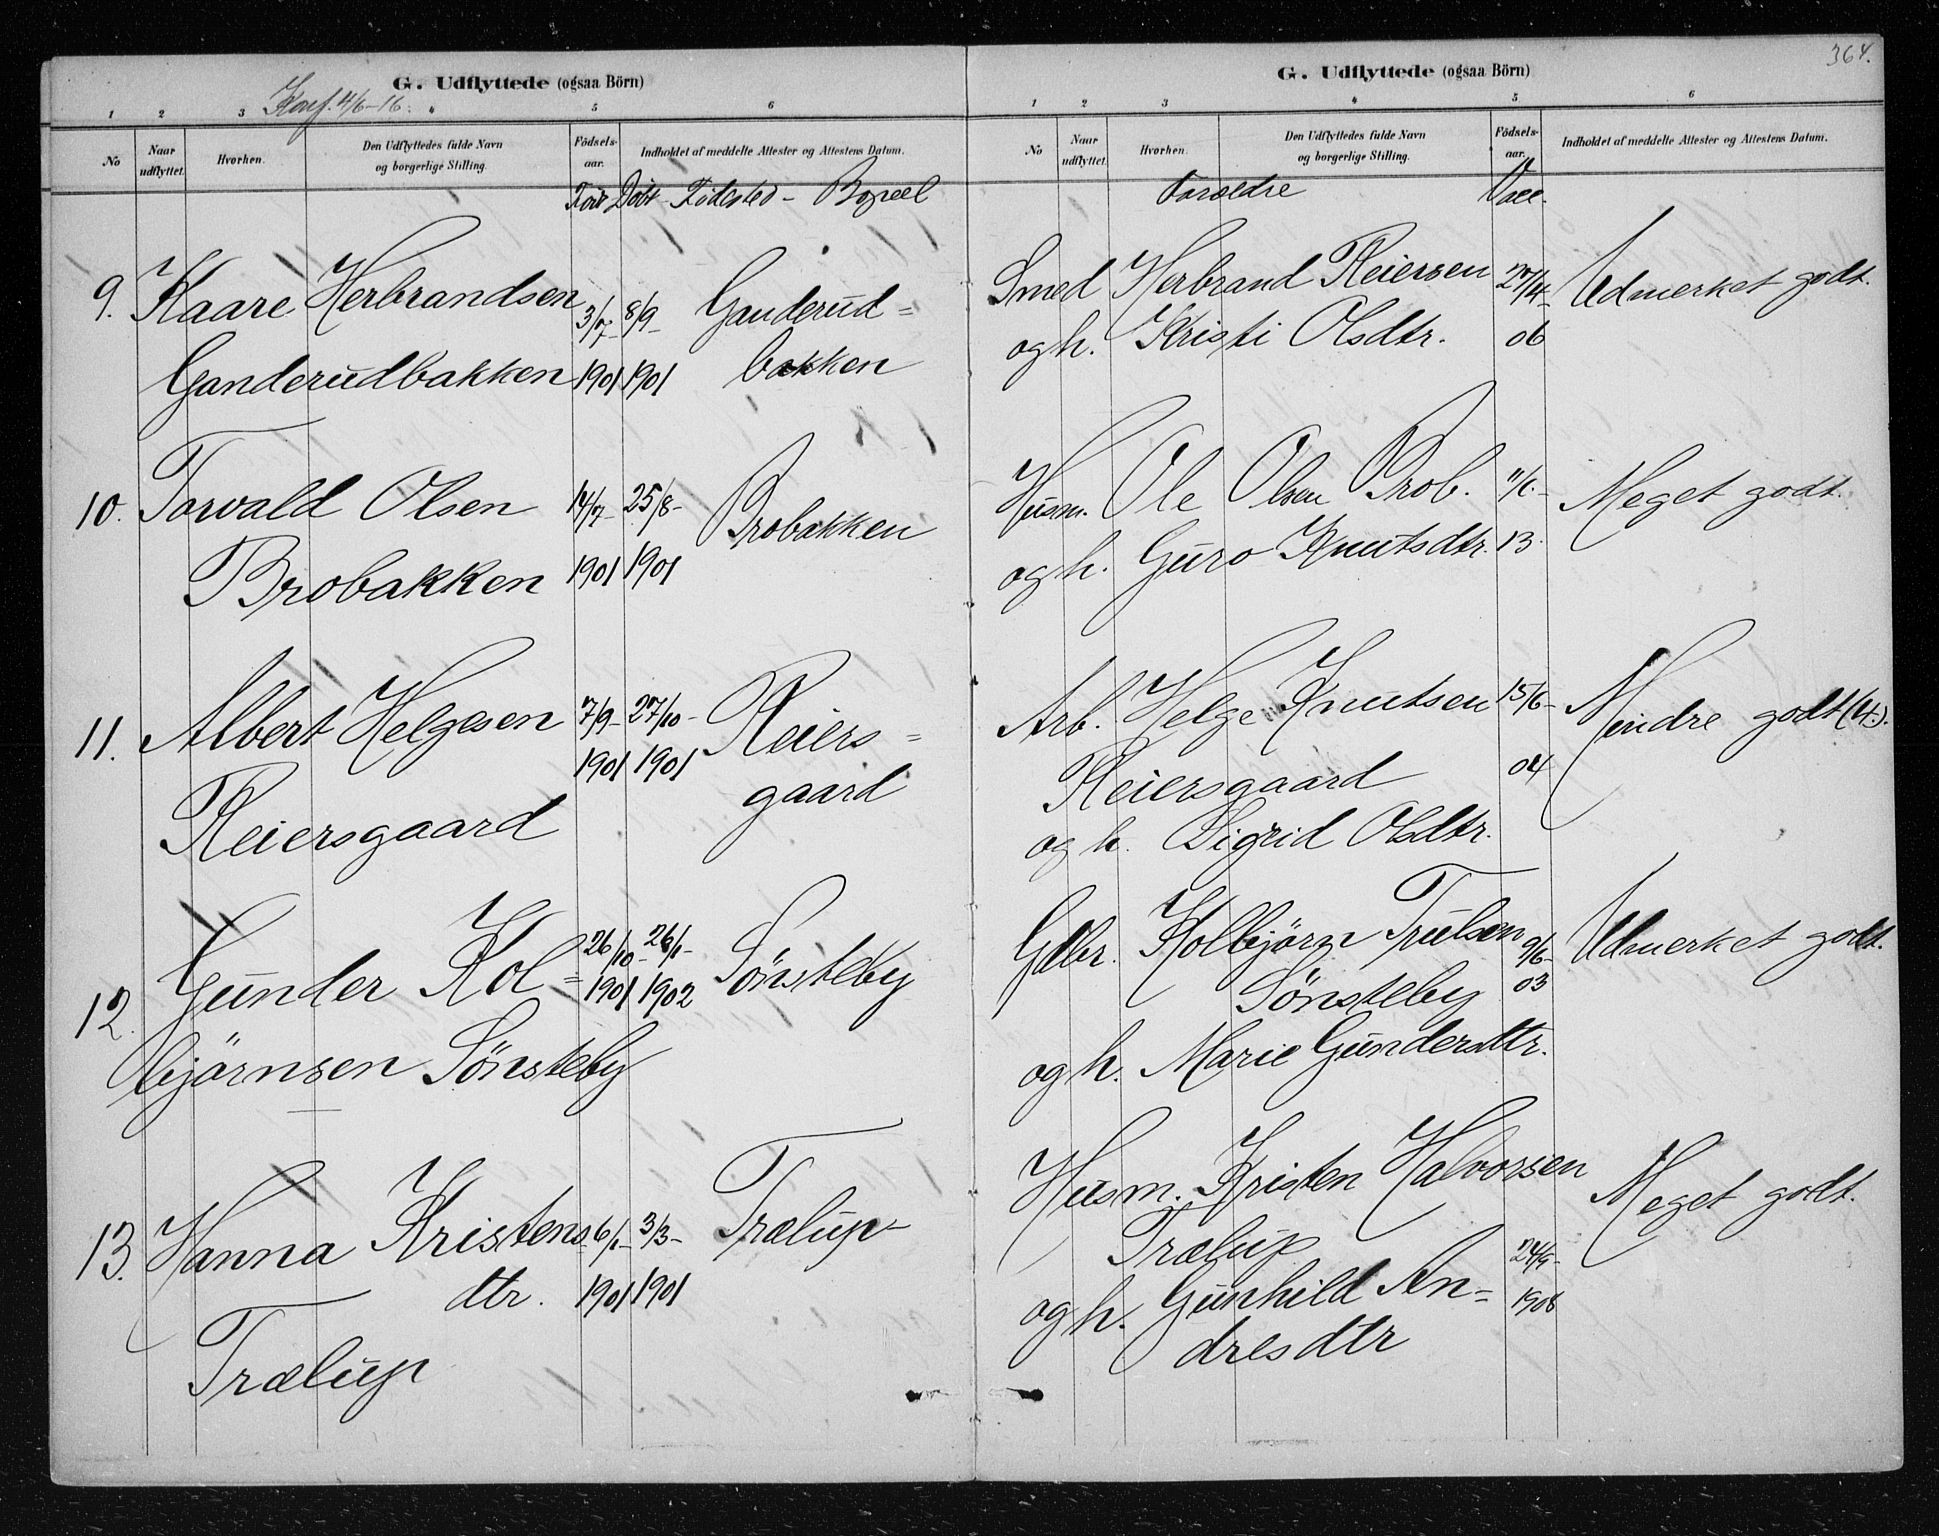 364.
G. Udflyttede (ogsaa Börn)
Konf. 4/6-16.
1 2 3 4 5 6
No Naar udflyttet. Hvorhen. Den Udflyttedes fulde Navn og borgerlige Stilling. Födsels-aar. Indholdet af meddelte Attester og Attestens Datum.
Født Døbt - Fødested - Bopæl
9. Kaare Herbrandsen 3/7- 8/9- Ganderud=
Ganderudbakken 1901 1901 bakken
10. Torvald Olsen 14/7- 25/8- Brobakken
Brobakken 1901 1901
11. Albert Helgesen 7/9- 27/10- Reiers=
Reiersgaard 1901 1901 gaard
12. Gunder Kol= 26/10- 26/1- Sönsteby
björnsen Sönsteby 1901 1902
13. Hanna Kristens 6/1- 3/3- Trælup
dtr. 1901 1901
Trælup
G. Udflyttede (ogsaa Börn)
1 2 3 4 5 6
No Naar udflyttet. Hvorhen. Den Udflyttedes fulde Navn og borgerlige Stilling. Födsels-aar. Indholdet af meddelte Attester og Attestens Datum.
Forældre Vacc.
Smed Herbrand Reiersen 27/4- Udmerket godt.
og h. Kristi Olsdtr. 06
Husm. Ole Olsen Brob. 11/6- Meget godt.
og h. Guro Knutsdtr. 13.
Arb. Helge Knutsen 15/6- Mindre godt (4-).
Reiersgaard 04
og h. Sigrid Olsdtr.
Gdbr. Kolbjörn Trulsen 9/6- Udmerket godt.
Sönsteby 03
og h. Marie Gundersdtr.
Husm. Kristen Halvorsen Meget godt.
Trælup 24/9-
og h. Gunhild An= 1908
dresdtr